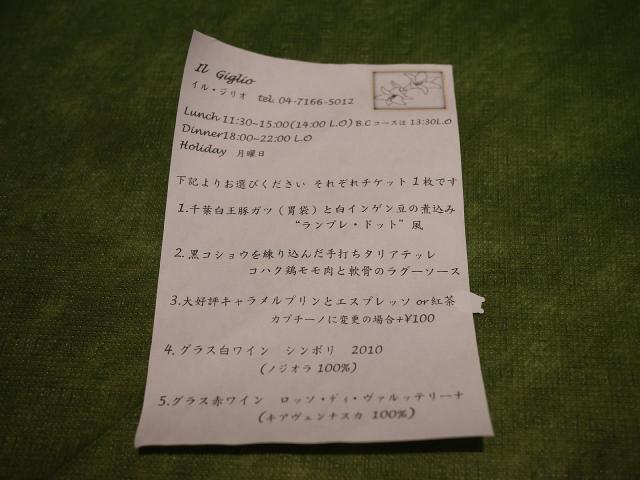 Il Giglio
イル・ジリオ tel: 04-7166-5012
Lunch 11:30~15:00(14:00 L.O) B.Cコースは 13:30L.O
Dinner18:00~22:00 L.O
Holiday 月曜日
下記よりお選びください それぞれチケット1枚です
1.千葉白王豚ガツ(胃袋)と白インゲン豆の煮込み
"ランプレ・ドット"風
2.黒コショウを練り込んだ手打ちタリアテッレ
コハク鶏モモ肉と軟骨のラグーソース
3.大好評キャラメルプリンとエスプレッソ or紅茶
カプチーノに変更の場合+¥100
4.グラス白ワイン シンボリ 2010
(ノジオラ 100%)
5.グラス赤ワイン ロッソ・ディ・ヴァルッテリーナ
(キアヴェンナスカ 100%)